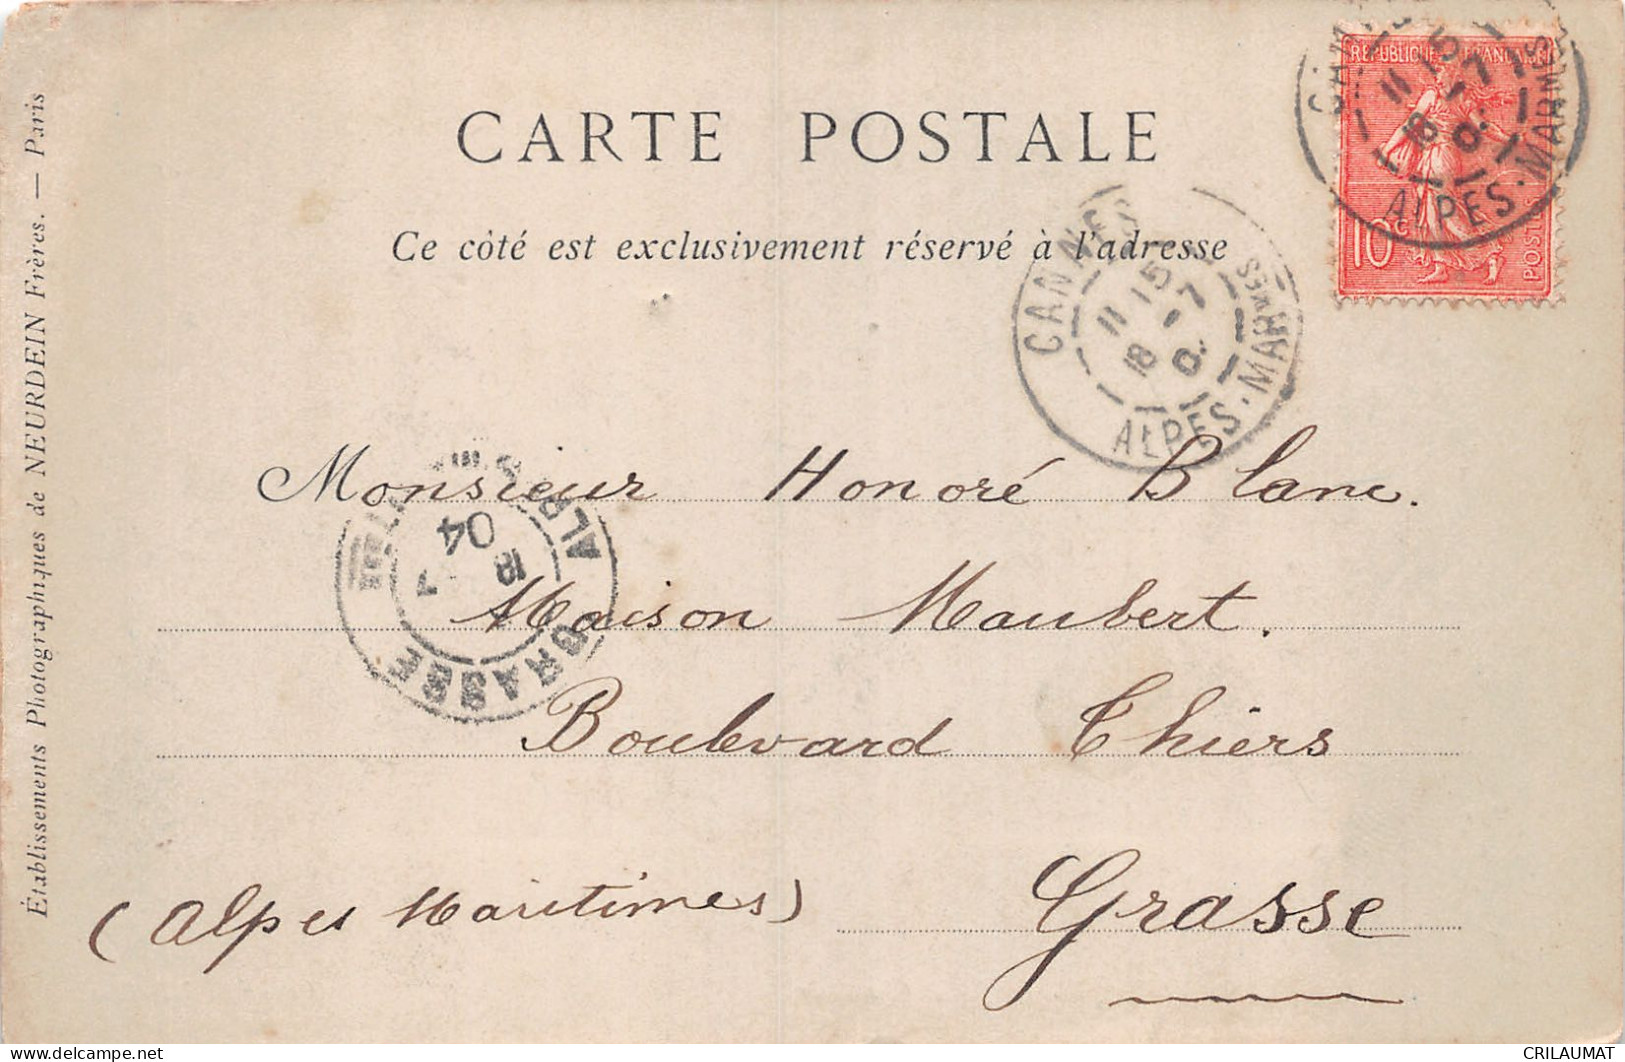 CARTE POSTALE
Ce côté est exclusivement réservé à l'adresse
RÉPUBLIQUE FRANÇAISE
10 c
POSTES
CANNES
11 15
18 - 7
0.
ALPES-MARMES
CANNES
11 15
18 - 7
0.
ALPES-MARMES
GRASSE
18
04
Monsieur Honoré Blanc.
Maison Maubert.
Boulevard Thiers
Grasse
(Alpes Maritimes)
Établissements Photographiques de NEURDEIN Frères. — Paris
CRILAUMAT